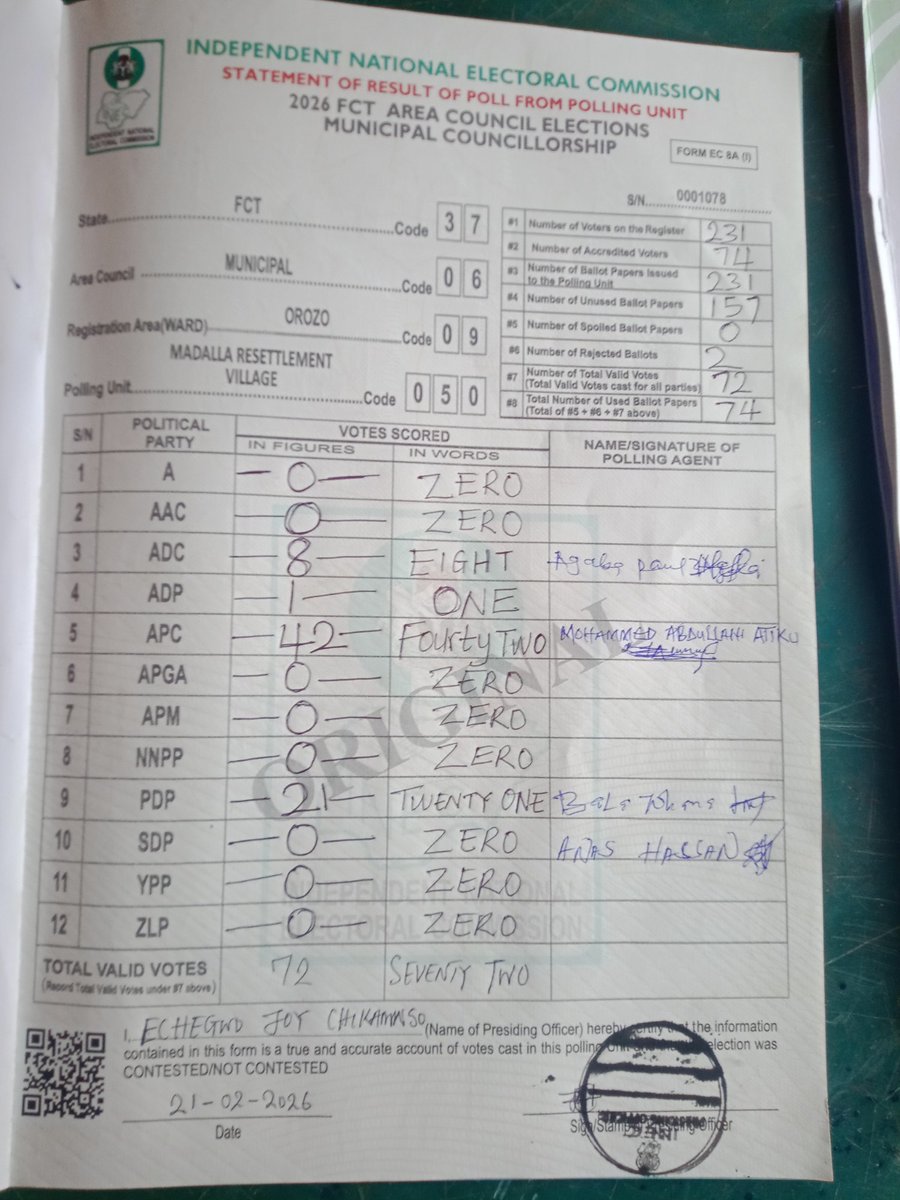 INDEPENDENT NATIONAL ELECTORAL COMMISSION
STATEMENT OF RESULT OF POLL FROM POLLING UNIT
2026 FCT AREA COUNCIL ELECTIONS
MUNICIPAL COUNCILLORSHIP
INDEPENDENT NATIONAL
ELECTORAL COMMISSION
FORM EC 8A (I)
S/N 0001078
State FCT Code 3 7
Area Council MUNICIPAL Code 0 6
Registration Area(WARD) OROZO Code 0 9
MADALLA RESETTLEMENT
Polling Unit VILLAGE Code 0 5 0
#1 Number of Voters on the Register 231
#2 Number of Accredited Voters 74
#3 Number of Ballot Papers Issued
to the Polling Unit 231
#4 Number of Unused Ballot Papers 157
#5 Number of Spoiled Ballot Papers 0
#6 Number of Rejected Ballots 2
#7 Number of Total Valid Votes
(Total Valid Votes cast for all parties) 72
#8 Total Number of Used Ballot Papers
(Total of #5 + #6 + #7 above) 74
S/N POLITICAL PARTY VOTES SCORED NAME/SIGNATURE OF POLLING AGENT
IN FIGURES IN WORDS
1 A 0 ZERO
2 AAC 0 ZERO
3 ADC 8 EIGHT
4 ADP 1 ONE
5 APC 42 Fourty Two MOHAMMED ABDULLAHI ATIKU
6 APGA 0 ZERO
7 APM 0 ZERO
8 NNPP 0 ZERO
9 PDP 21 TWENTY ONE
10 SDP 0 ZERO ANAS HASSAN
11 YPP 0 ZERO
12 ZLP 0 ZERO
ORIGINAL
INDEPENDENT NATIONAL
ELECTORAL COMMISSION
TOTAL VALID VOTES 72 SEVENTY TWO
(Record Total Valid Votes under #7 above)
I, JOY (Name of Presiding Officer) hereby certify that the information
contained in this form is a true and accurate account of votes cast in this polling election was
CONTESTED/NOT CONTESTED
21-02-2026
Date
Sign/Stamp Officer